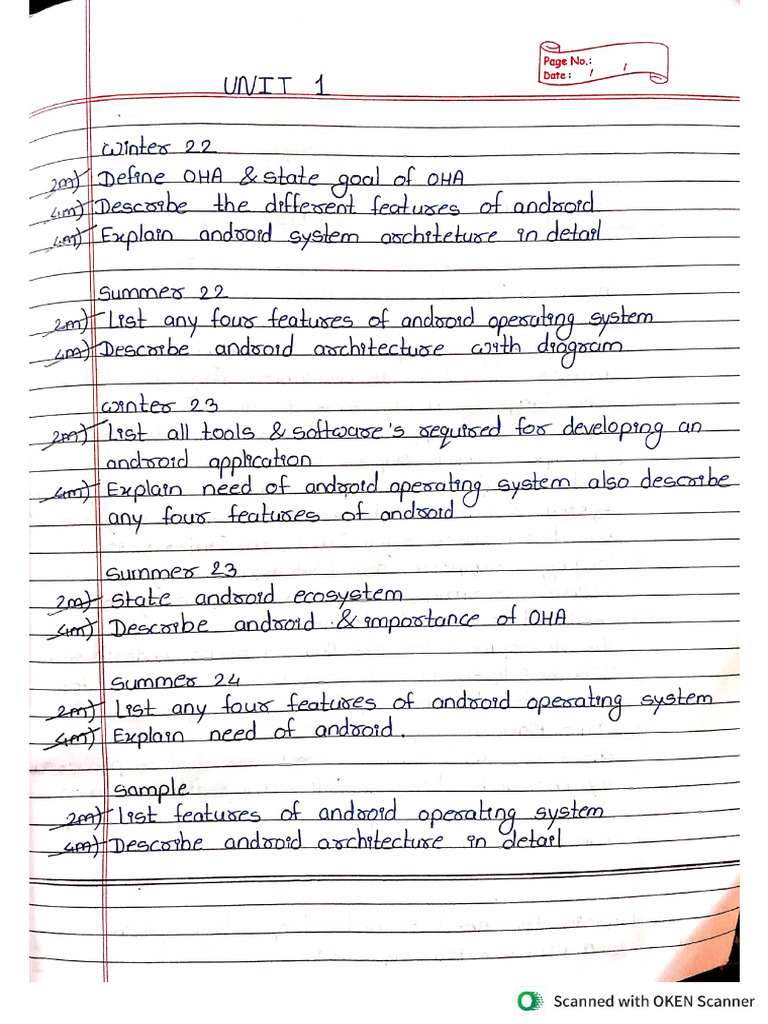 Page No.:
Date: / /
UNIT 1
Winter 22
2m) Define OHA & state goal of OHA
4m) Describe the different features of android
4m) Explain android system architeture in detail
Summer 22
2m) List any four features of android operating system
4m) Describe android architecture with diagram
Winter 23
2m) List all tools & software's required for developing an
android application
4m) Explain need of android operating system also describe
any four features of android.
Summer 23
2m) State android ecosystem
4m) Describe android & importance of OHA
Summer 24
2m) List any four features of android operating system
4m) Explain need of android.
Sample
2m) List features of android operating system
4m) Describe android architecture in detail
Scanned with OKEN Scanner